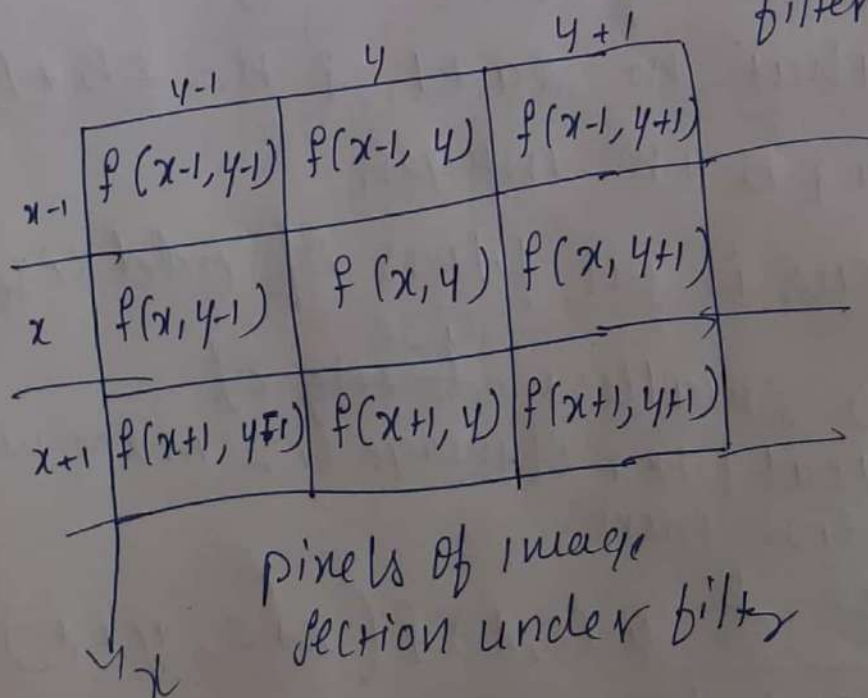 filter
y-1 y y+1
x-1 f(x-1, y-1) f(x-1, y) f(x-1, y+1)
x f(x, y-1) f(x, y) f(x, y+1)
x+1 f(x+1, y-1) f(x+1, y) f(x+1, y+1)
pixels of image
section under filter
x